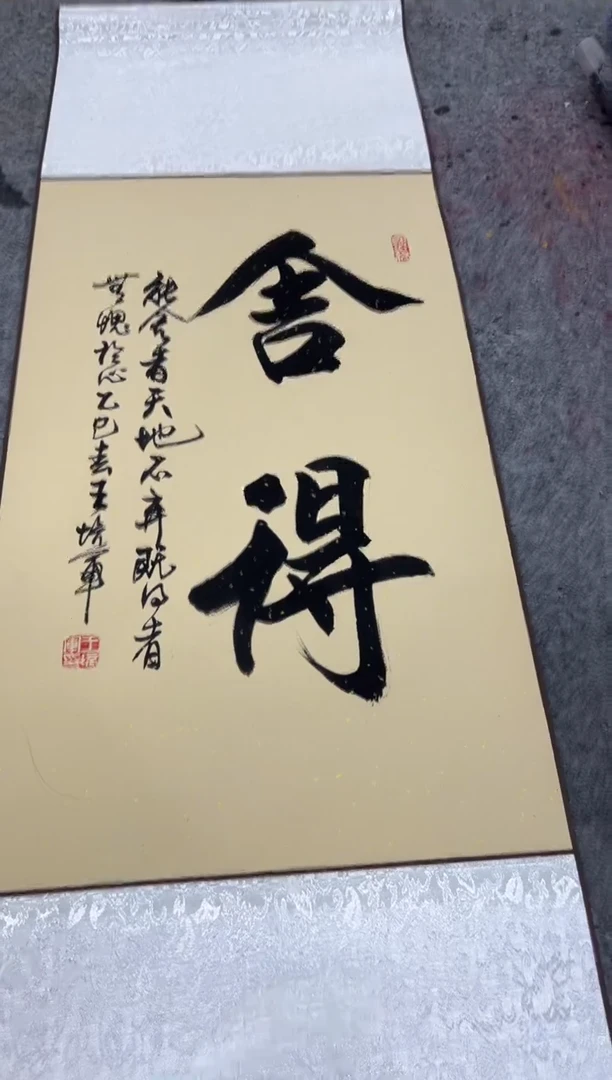 舍得
能舍者天地不弃既得者
无愧於心乙巳春王培军